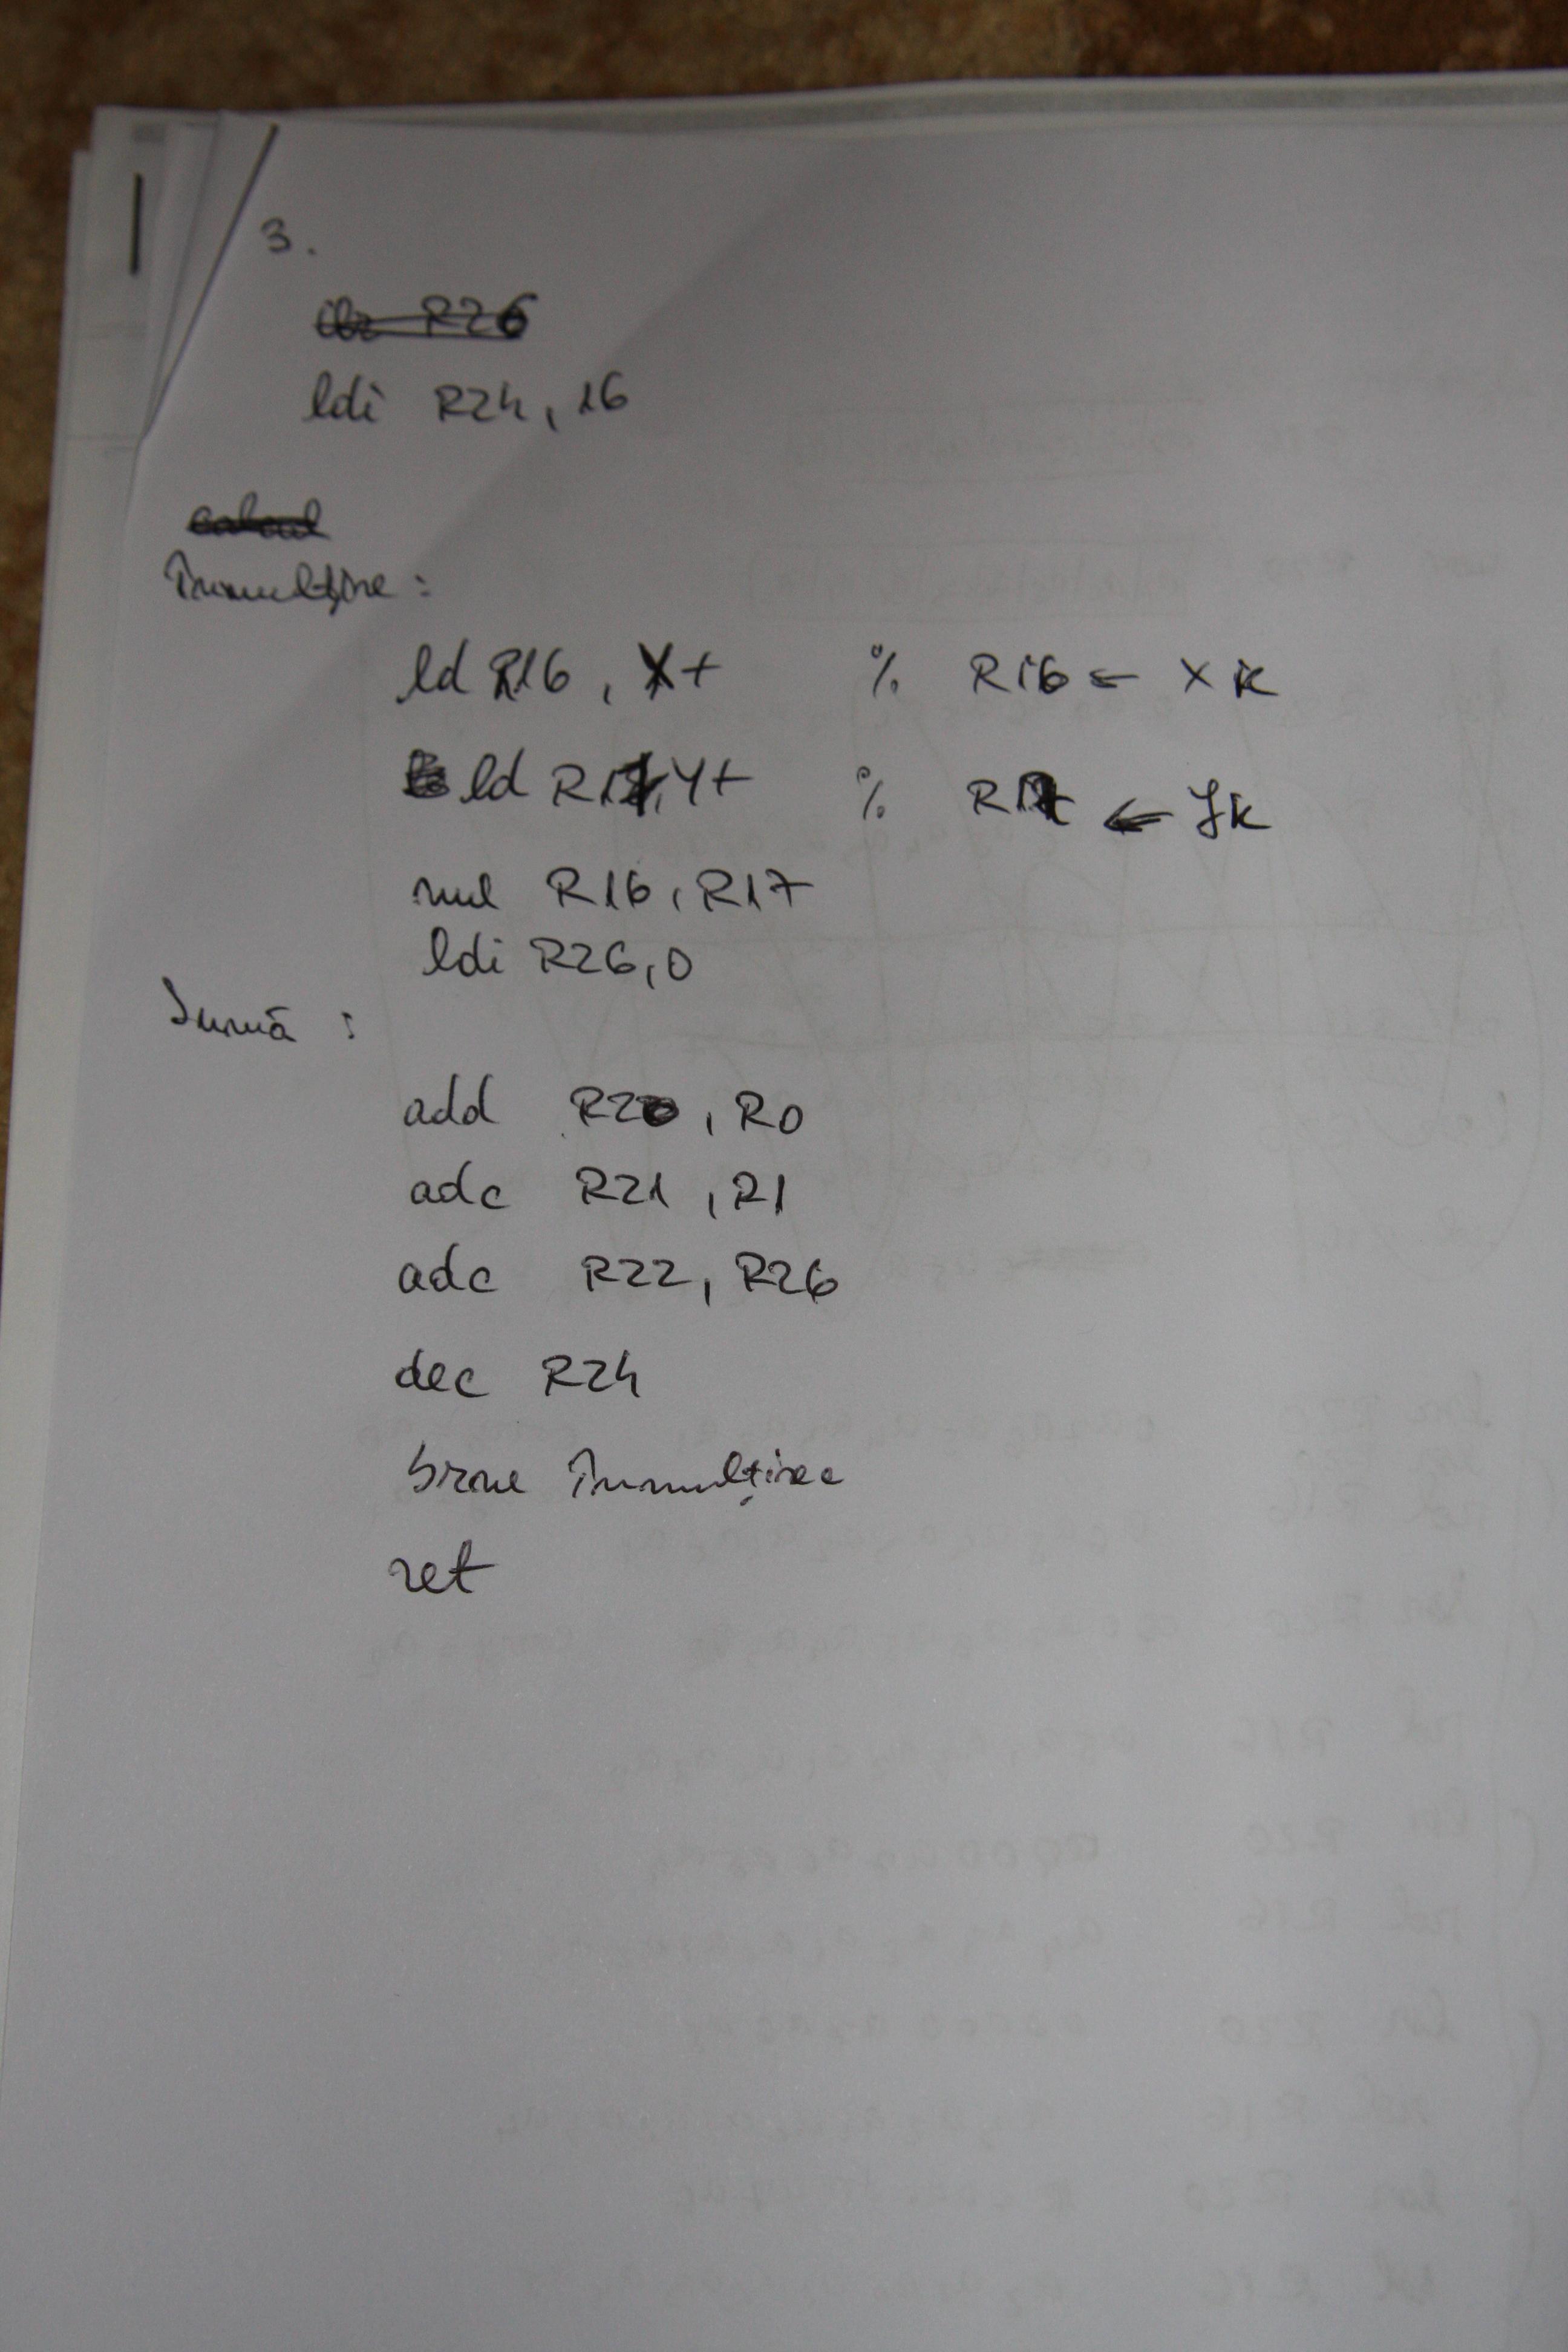 3.
ldi R24, 16
Înmulțire :
ld R16, X+ % R16 ← xk
ld R17, Y+ % R17 ← yk
mul R16, R17
ldi R26, 0
Sumă :
add R20, R0
adc R21, R1
adc R22, R26
dec R24
brne Înmulțirea
ret